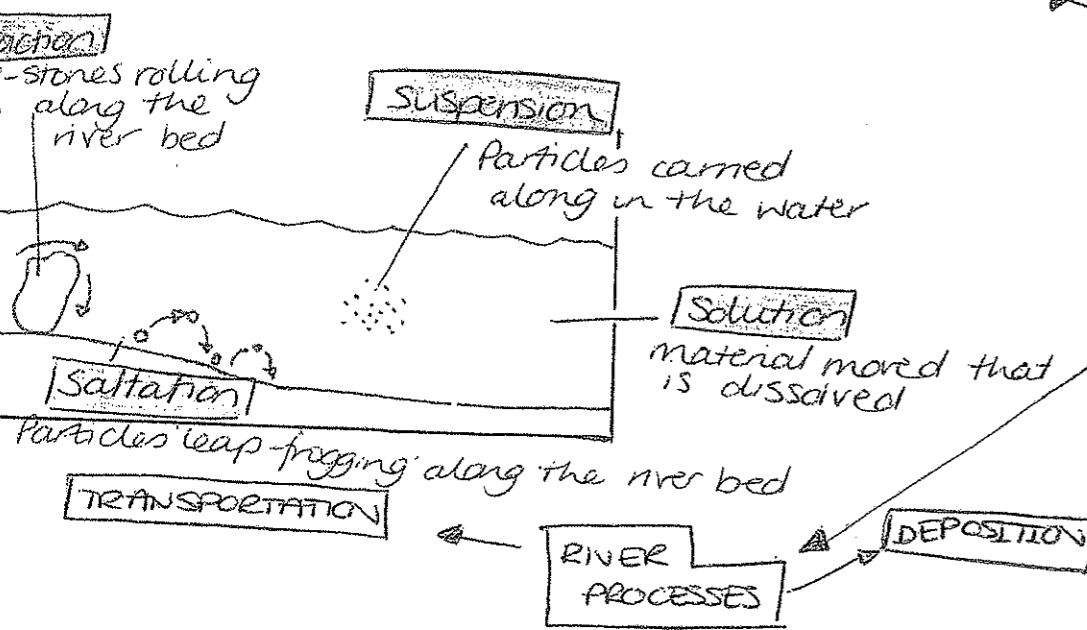 action
-stones rolling
along the
river bed
Suspension
Particles carried
along in the water
Solution
material moved that
is dissolved
Saltation
Particles 'leap-frogging' along the river bed
TRANSPORTATION
RIVER
PROCESSES
DEPOSITION